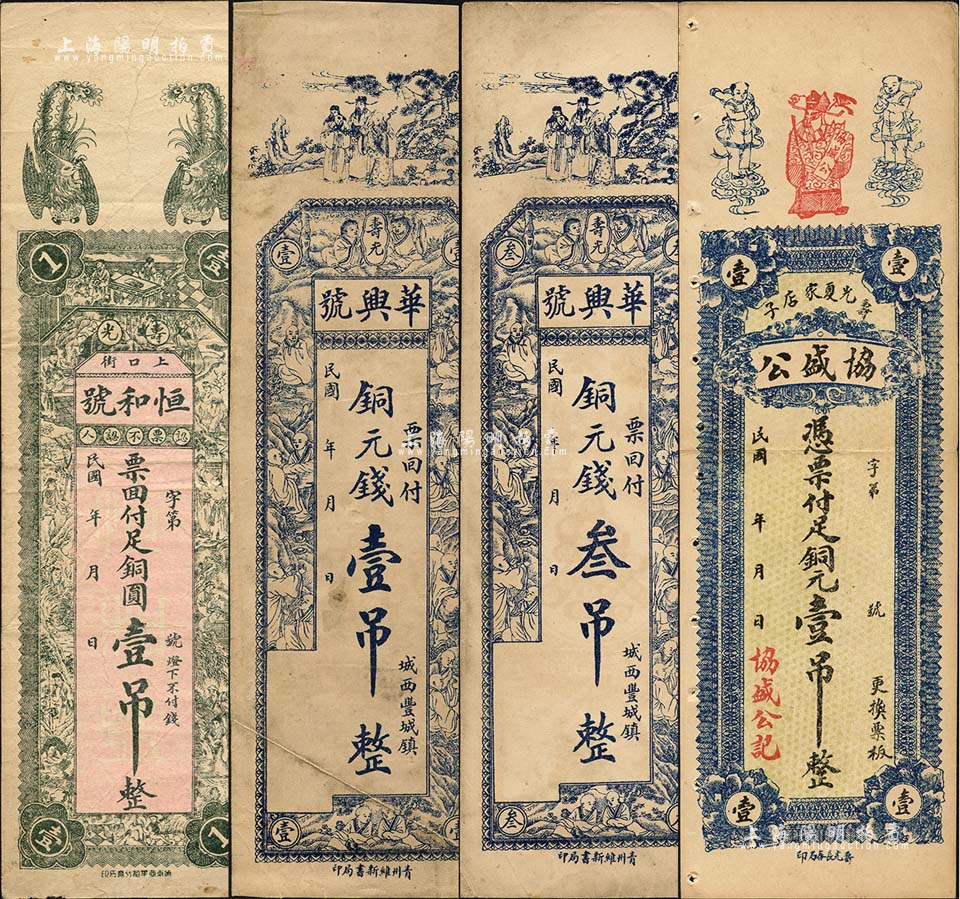 上海陽明拍賣
www.yangmingauction.com
1
壹
壽光
上口街
恒和號
認票不認人
字第
號
燈下不付錢
票回付足銅圓壹吊整
民國
年
月
日
壹
1
壹
壽光
華興號
票回付
城西豐城鎮
銅元錢壹吊整
民國
年
月
日
壹
青州維新書局印
叁
壽光
華興號
票回付
城西豐城鎮
銅元錢叁吊整
民國
年
月
日
叁
青州維新書局印
上海陽明拍賣
www.yangmingauction.com
壹
壹
壽光夏家店子
協盛公
字第
號
更換票板
憑票付足銅元壹吊整
民國
年
月
日
協盛公記
壹
壹
上海陽明拍賣
www.yangmingauction.com